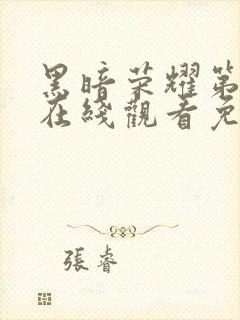 黑暗荣耀第
在綫觀看免
張睿